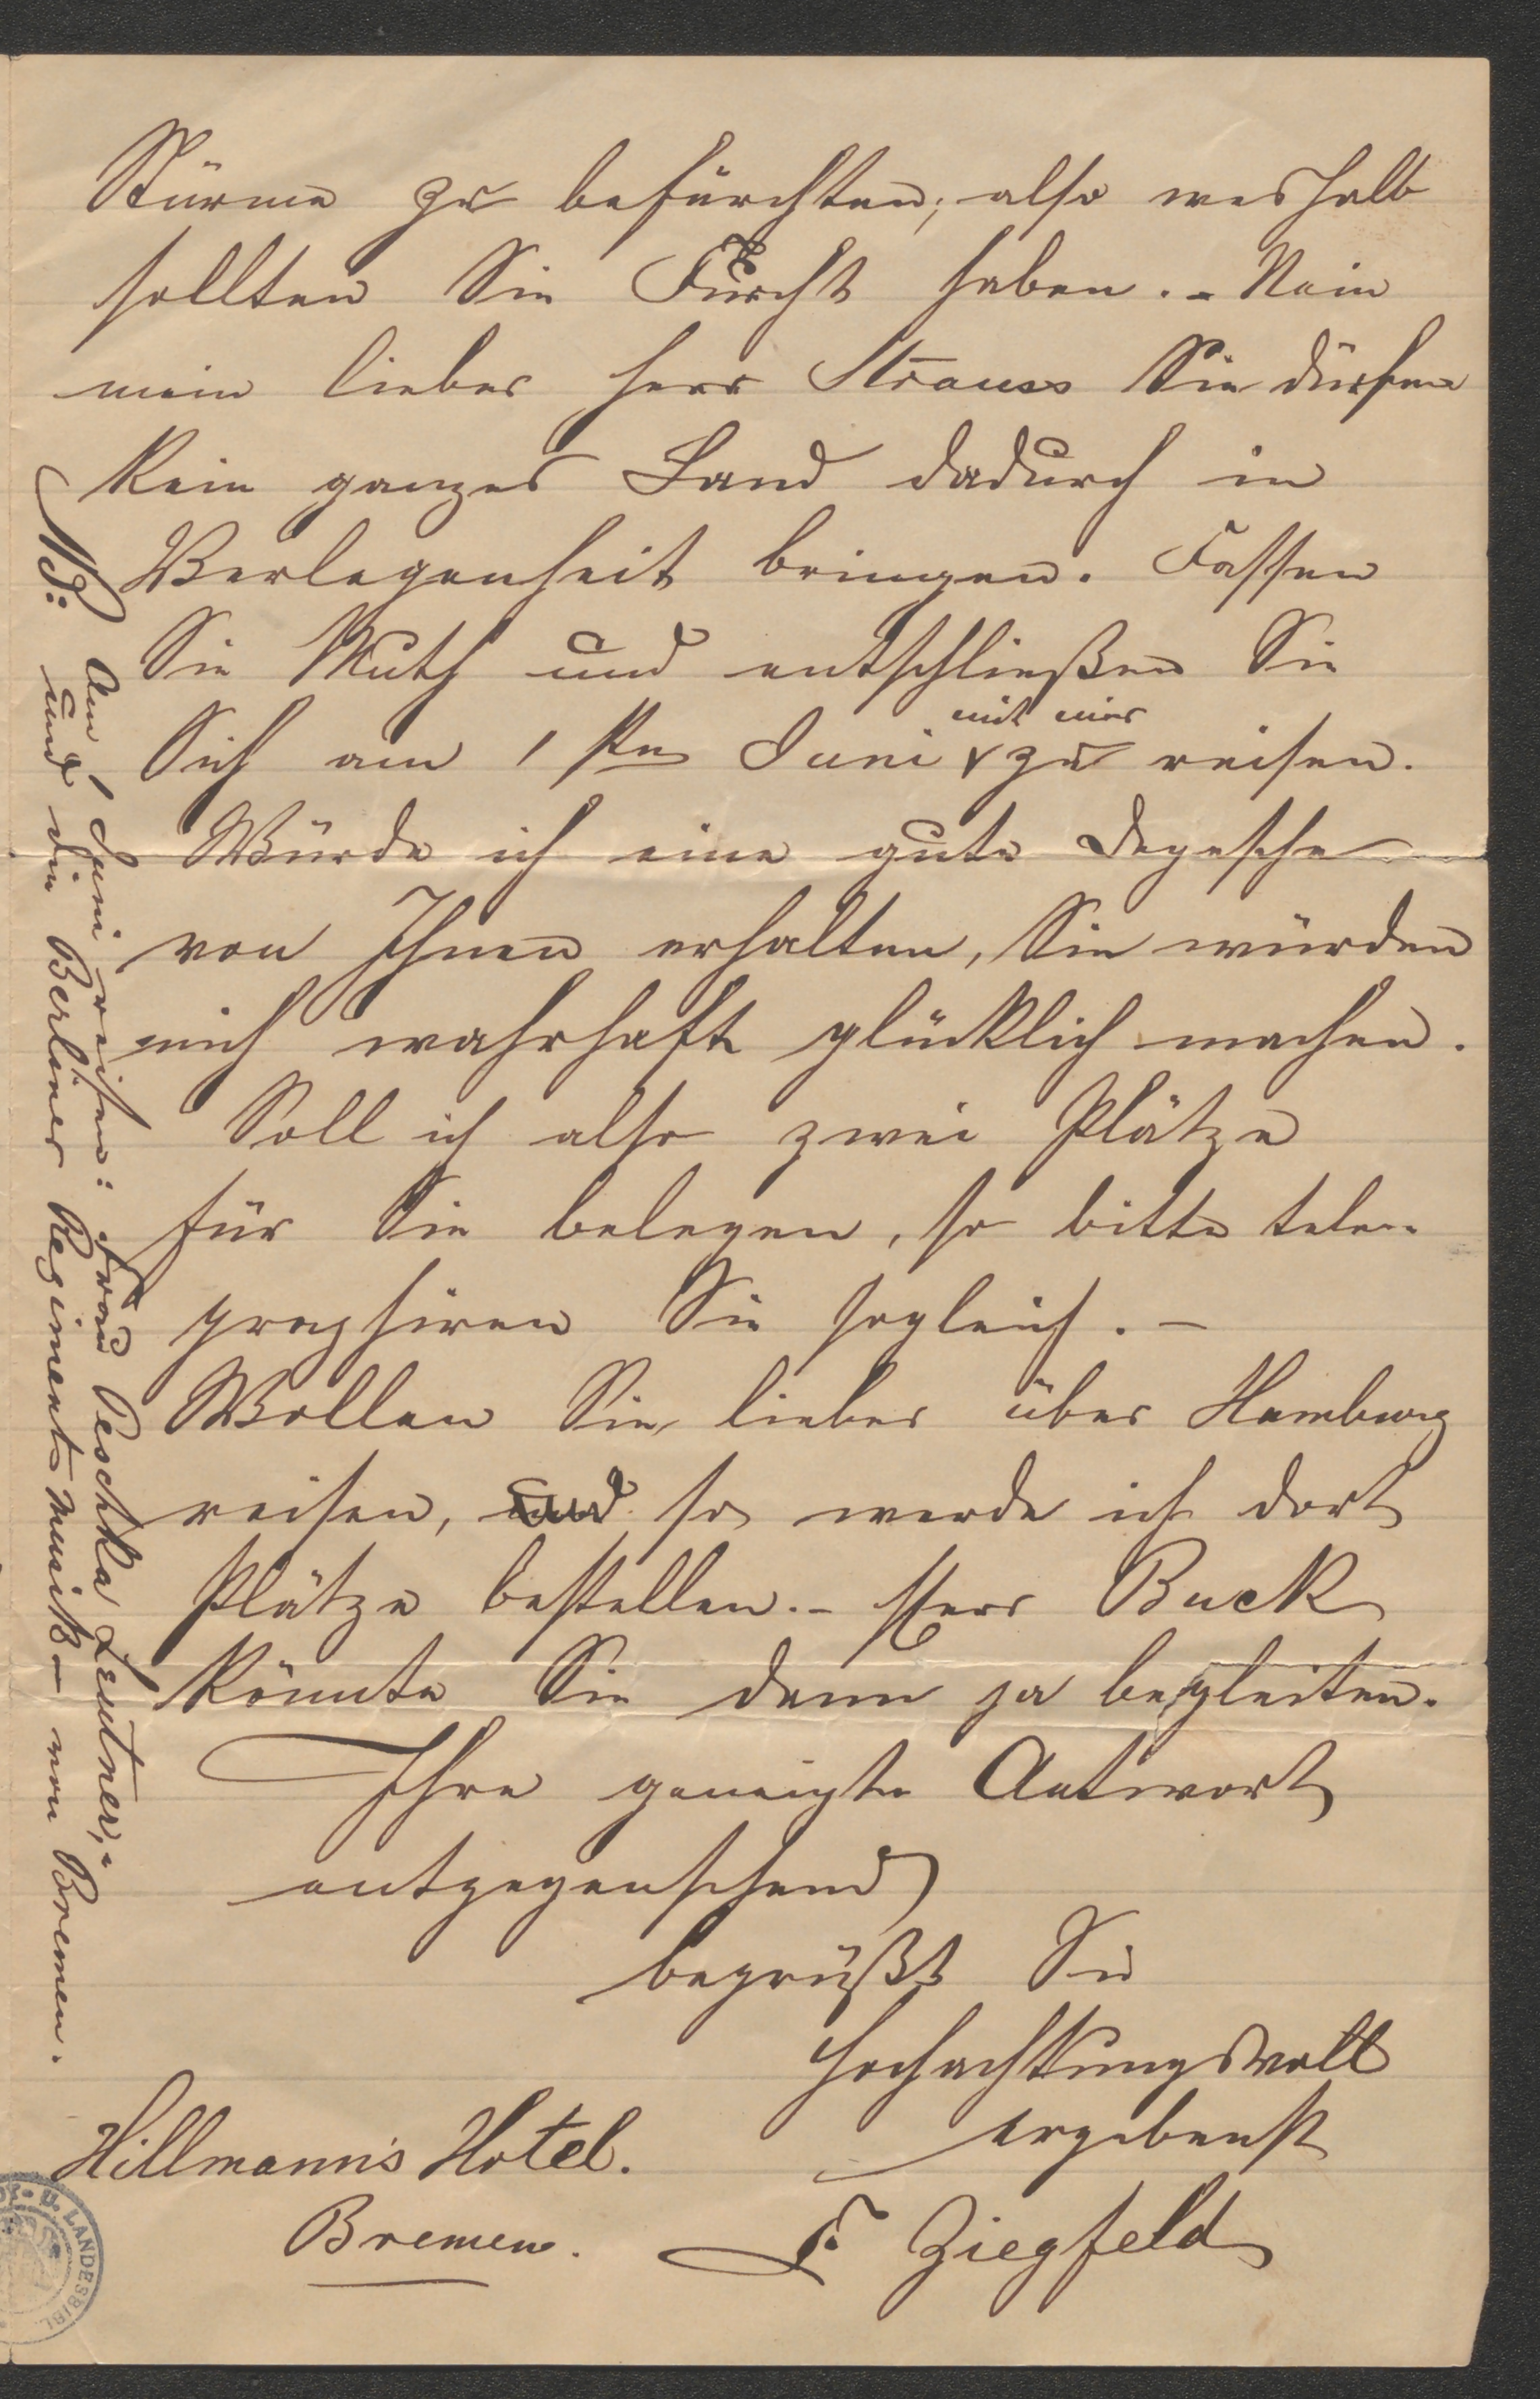 Stürme zu befürchten; also weshalb
sollten Sie Furcht haben. - Nein
mein lieber Herr Strauss Sie dürfen
kein ganzes Land dadurch in
Verlegenheit bringen. Fassen
Sie Muth und entschließen Sie
mit mir
Sich am 1sten Juni zu reisen.
Würde ich eine gute Depesche
von Ihnen erhalten, Sie würden
mich wahrhaft glücklich machen.
Soll ich also zwei Plätze
für Sie belegen, so bitte tele=
graphiren Sie sogleich. -
Wollen Sie lieber über Hamburg
reisen, und so werde ich dort
Plätze bestellen. - Herr Buck
könnte Sie dann ja begleiten.
Ihre geneigte Antwort
entgegensehend
begrüßt Sie
hochachtungsvoll
ergebenst
F. Ziegfeld
Hillmann's Hotel.
Bremen.
NB: Am 1 Juni reisen: Frau Peschka Leutner,
und die Berliner Regiment Musik - von Bremen.
U. LANDESBIBL